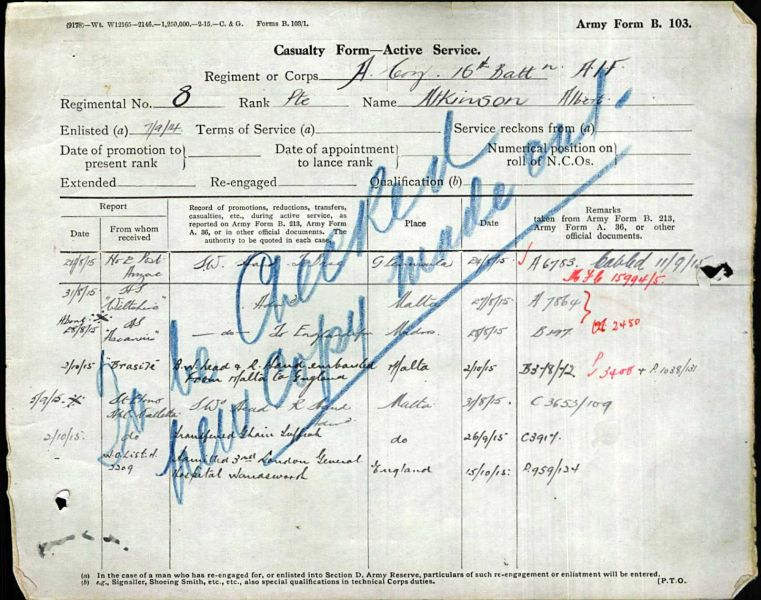 (9178)—Wt. W12565—2146.—1,250,000.—2-15.—C. & G. Forms B. 103/1.
Army Form B. 103.
Casualty Form—Active Service.
Regiment or Corps A. Coy. 16th Battn A I F
Regimental No. 8 Rank Pte Name Atkinson Albert
Enlisted (a) 7/9/14 Terms of Service (a) Service reckons from (a)
Date of promotion to present rank } Date of appointment to lance rank } Numerical position on roll of N.C.Os. }
Extended Re-engaged Qualification (b)
Report
Date
From whom received
Record of promotions, reductions, transfers, casualties, etc., during active service, as reported on Army Form B. 213, Army Form A. 36, or in other official documents. The authority to be quoted in each case.
Place
Date
Remarks taken from Army Form B. 213, Army Form A. 36, or other official documents.
A 6753. Cabled 11/9/15
15994/5.
31/8/15 HS "Wiltshire" Malta 27/8/15 A 7864
28/8/15 HS — do — To England 28/8/15 B 197 2450
2/10/15 Head & R. Hand embarked From Malta to England Malta 2/10/15 3408
Head R Hand Malta 31/8/15 C 3653/109
2/10/15 do Transferred Ghain Tuffieh do 26/9/15 C3917.
Admitted 3rd London General Hospital Wandsworth England 15/10/15 P.959/134
To be Checked
New Copy made out.
(a) In the case of a man who has re-engaged for, or enlisted into Section D, Army Reserve, particulars of such re-engagement or enlistment will be entered.
(b) e.g., Signaller, Shoeing Smith, etc., etc., also special qualifications in technical Corps duties.
[P.T.O.